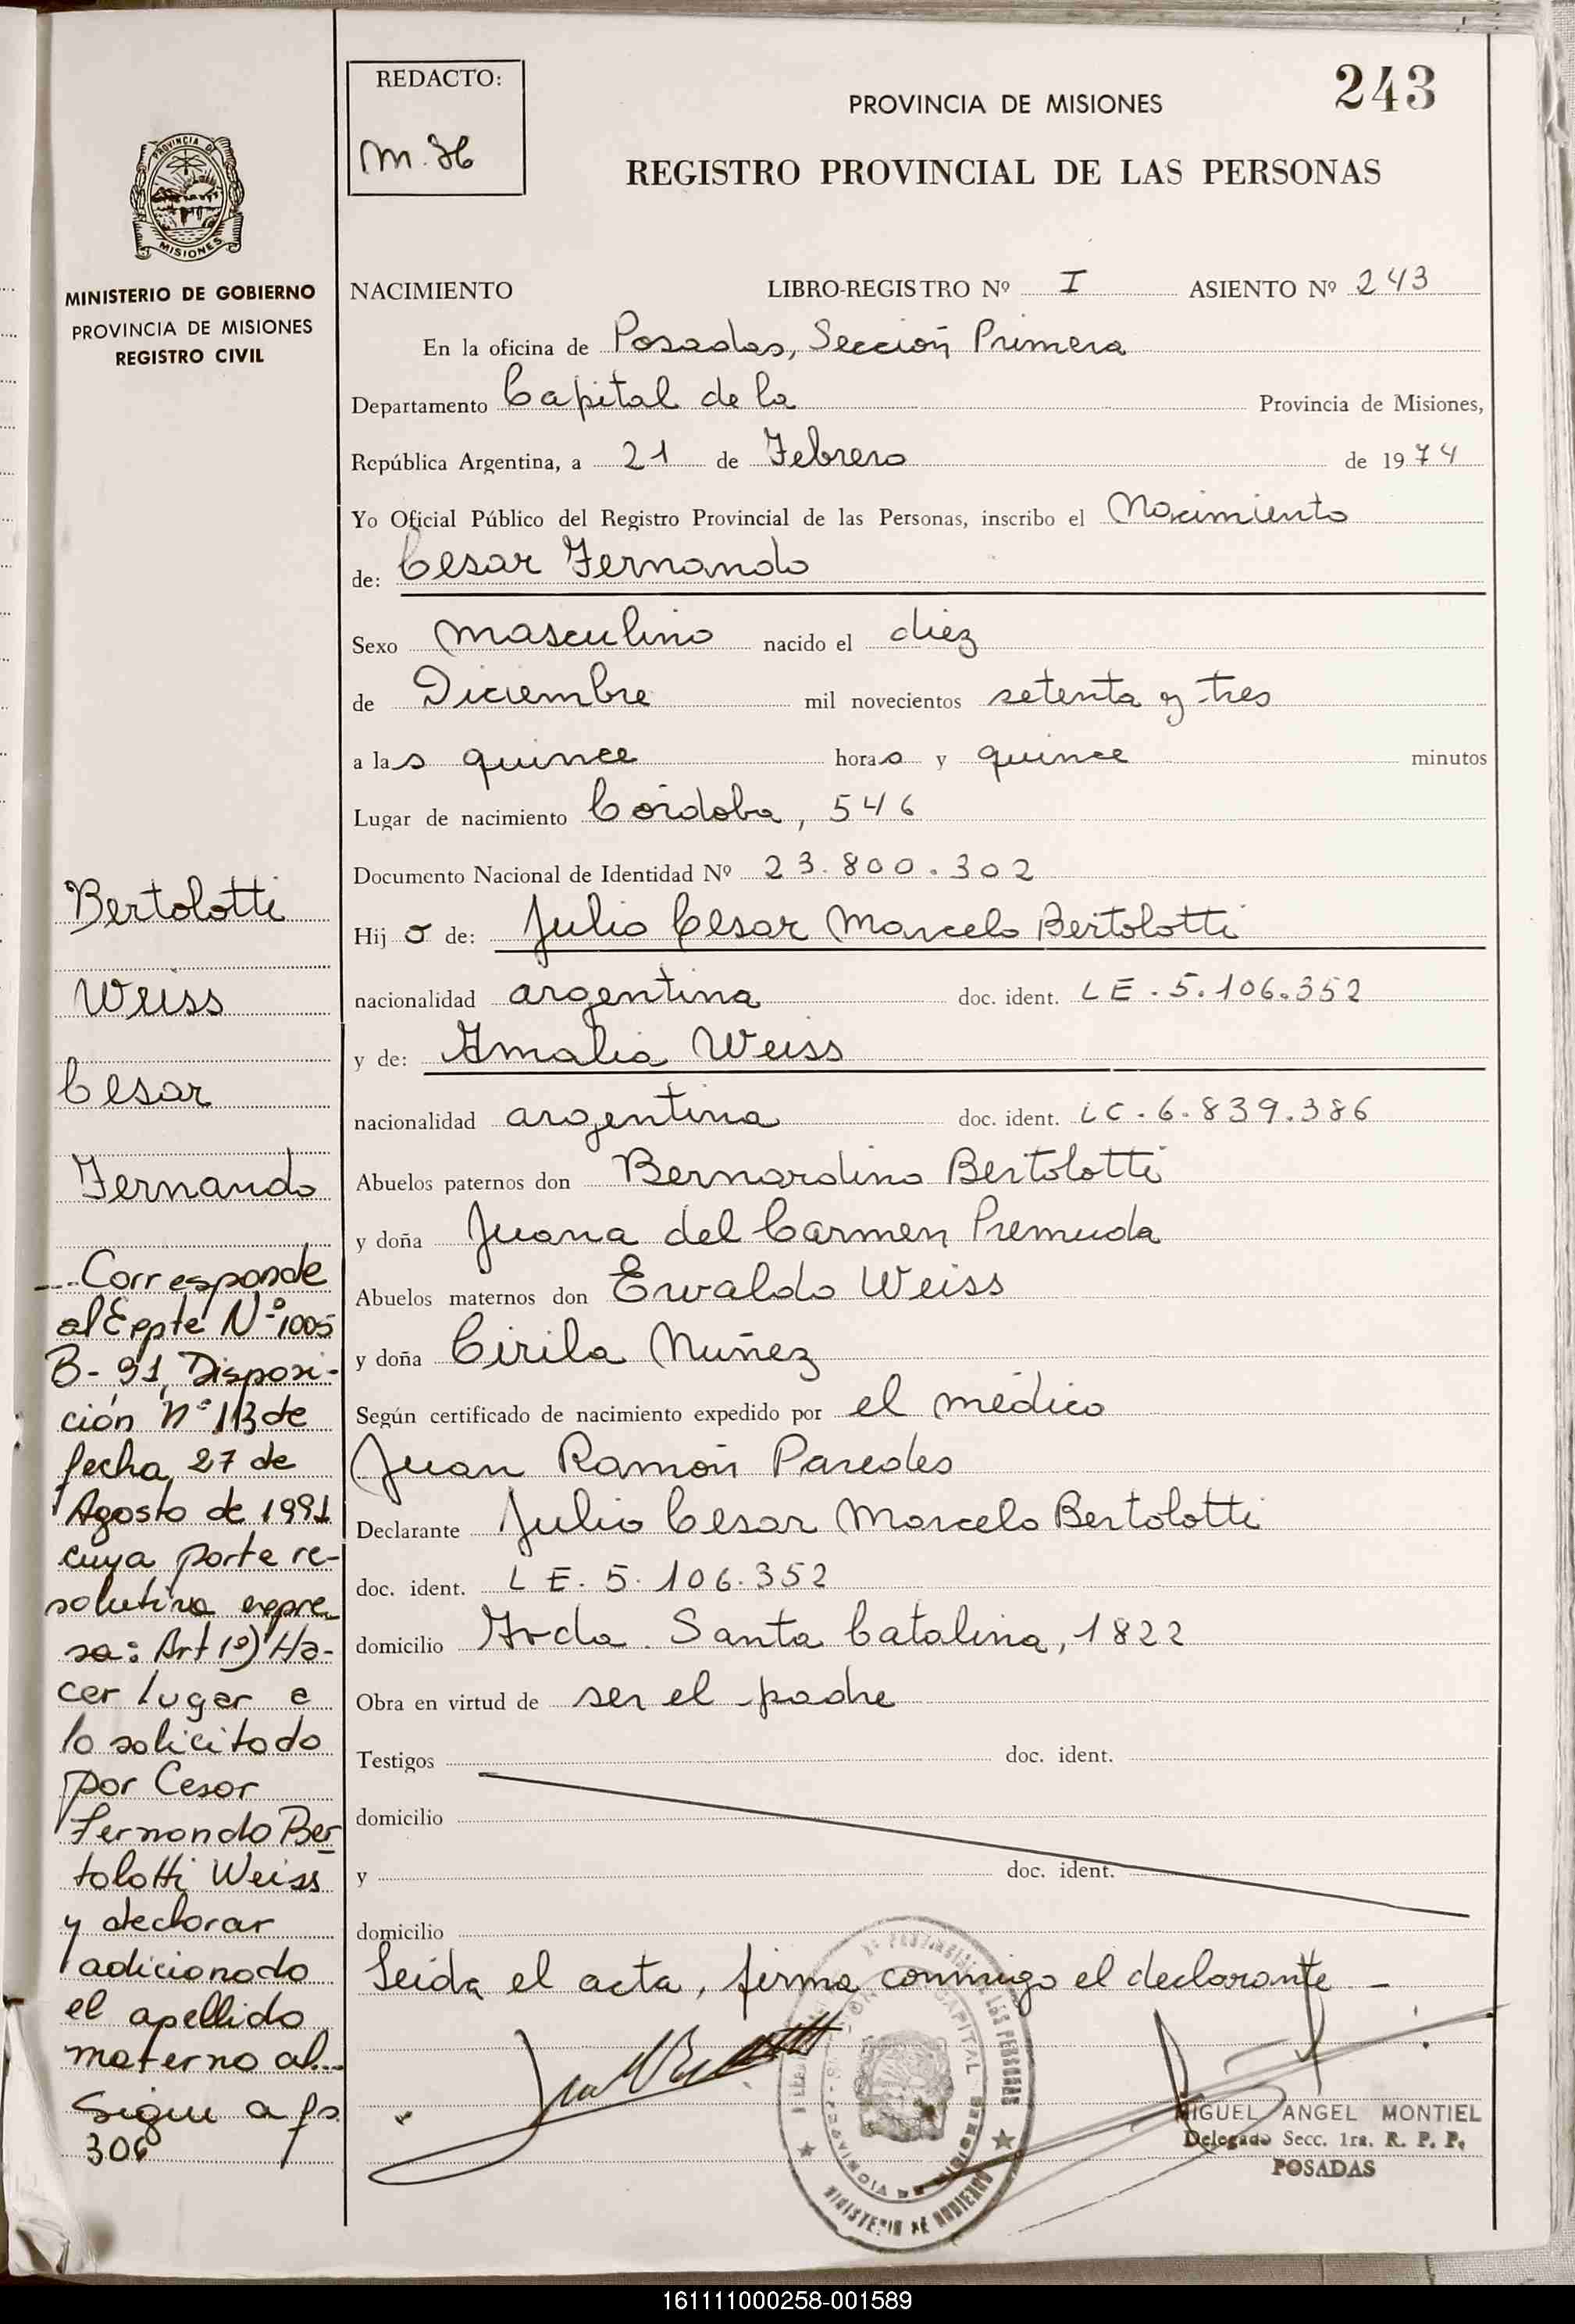 REDACTO:
M.H
PROVINCIA DE MISIONES
243
REGISTRO PROVINCIAL DE LAS PERSONAS
PROVINCIA DE
MISIONES
MINISTERIO DE GOBIERNO
PROVINCIA DE MISIONES
REGISTRO CIVIL
NACIMIENTO LIBRO-REGISTRO Nº I ASIENTO Nº 243
En la oficina de Posadas, Sección Primera
Departamento Capital de la Provincia de Misiones,
República Argentina, a 21 de Febrero de 1974
Yo Oficial Público del Registro Provincial de las Personas, inscribo el Nacimiento
de: Cesar Fernando
Sexo masculino nacido el diez
de Diciembre mil novecientos setenta y tres
a las quince horas y quince minutos
Lugar de nacimiento Córdoba, 546
Documento Nacional de Identidad Nº 23.800.302
Hijo de: Julio Cesar Marcelo Bertolotti
nacionalidad argentina doc. ident. LE. 5.106.352
y de: Amalia Weiss
nacionalidad argentina doc. ident. LC. 6.839.386
Abuelos paternos don Bernardino Bertolotti
y doña Juana del Carmen Premuda
Abuelos maternos don Ervaldo Weiss
y doña Cirila Nuñez
Según certificado de nacimiento expedido por el médico
Juan Ramón Paredes
Declarante Julio Cesar Marcelo Bertolotti
doc. ident. LE. 5.106.352
domicilio Avda. Santa Catalina, 1822
Obra en virtud de ser el padre
Testigos doc. ident.
domicilio
y doc. ident.
domicilio
Leida el acta, firma conmigo el declarante -
MIGUEL ANGEL MONTIEL
Delegado Secc. 1ra. R. P. P.
POSADAS
Bertolotti
Weiss
Cesar
Fernando
Corresponde
al Expte Nº 1005
B-91, Disposi-
ción Nº 113 de
fecha 27 de
Agosto de 1991
cuya parte re-
solutiva expre-
sa: Art 1º) Ha-
cer lugar a
lo solicitado
por Cesar
Fernando Ber
tolotti Weiss
y declarar
adicionado
el apellido
materno al...
Sigue a fs.
306
161111000258-001589